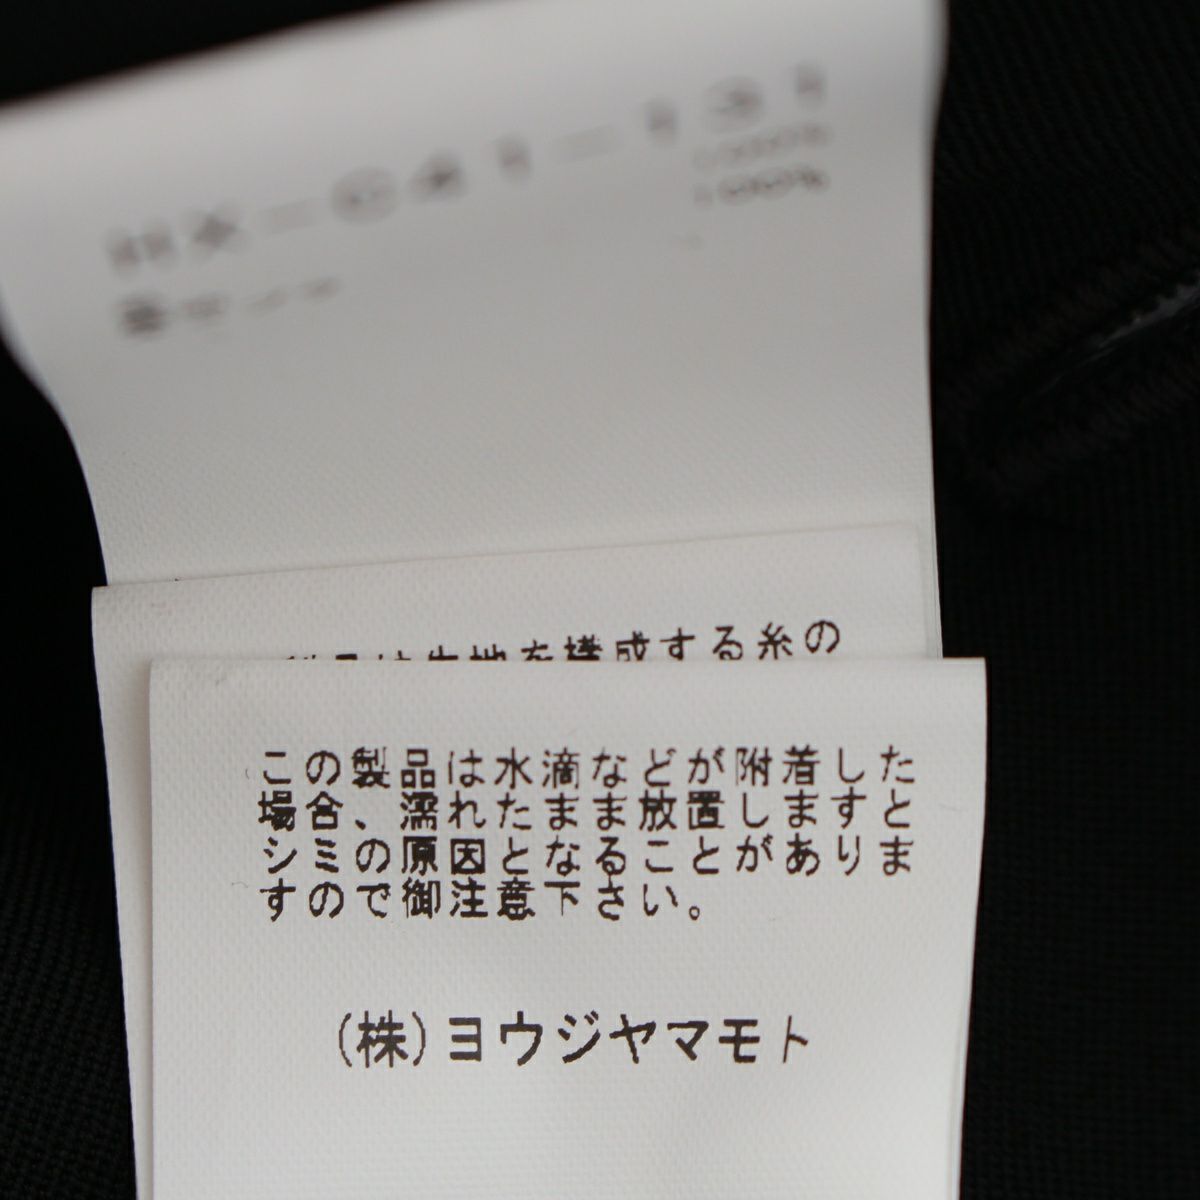 100%
100%
は生地を構成する糸の
この製品は水滴などが附着した
場合、濡れたまま放置しますと
シミの原因となることがありま
すので御注意下さい。
(株)ヨウジヤマモト